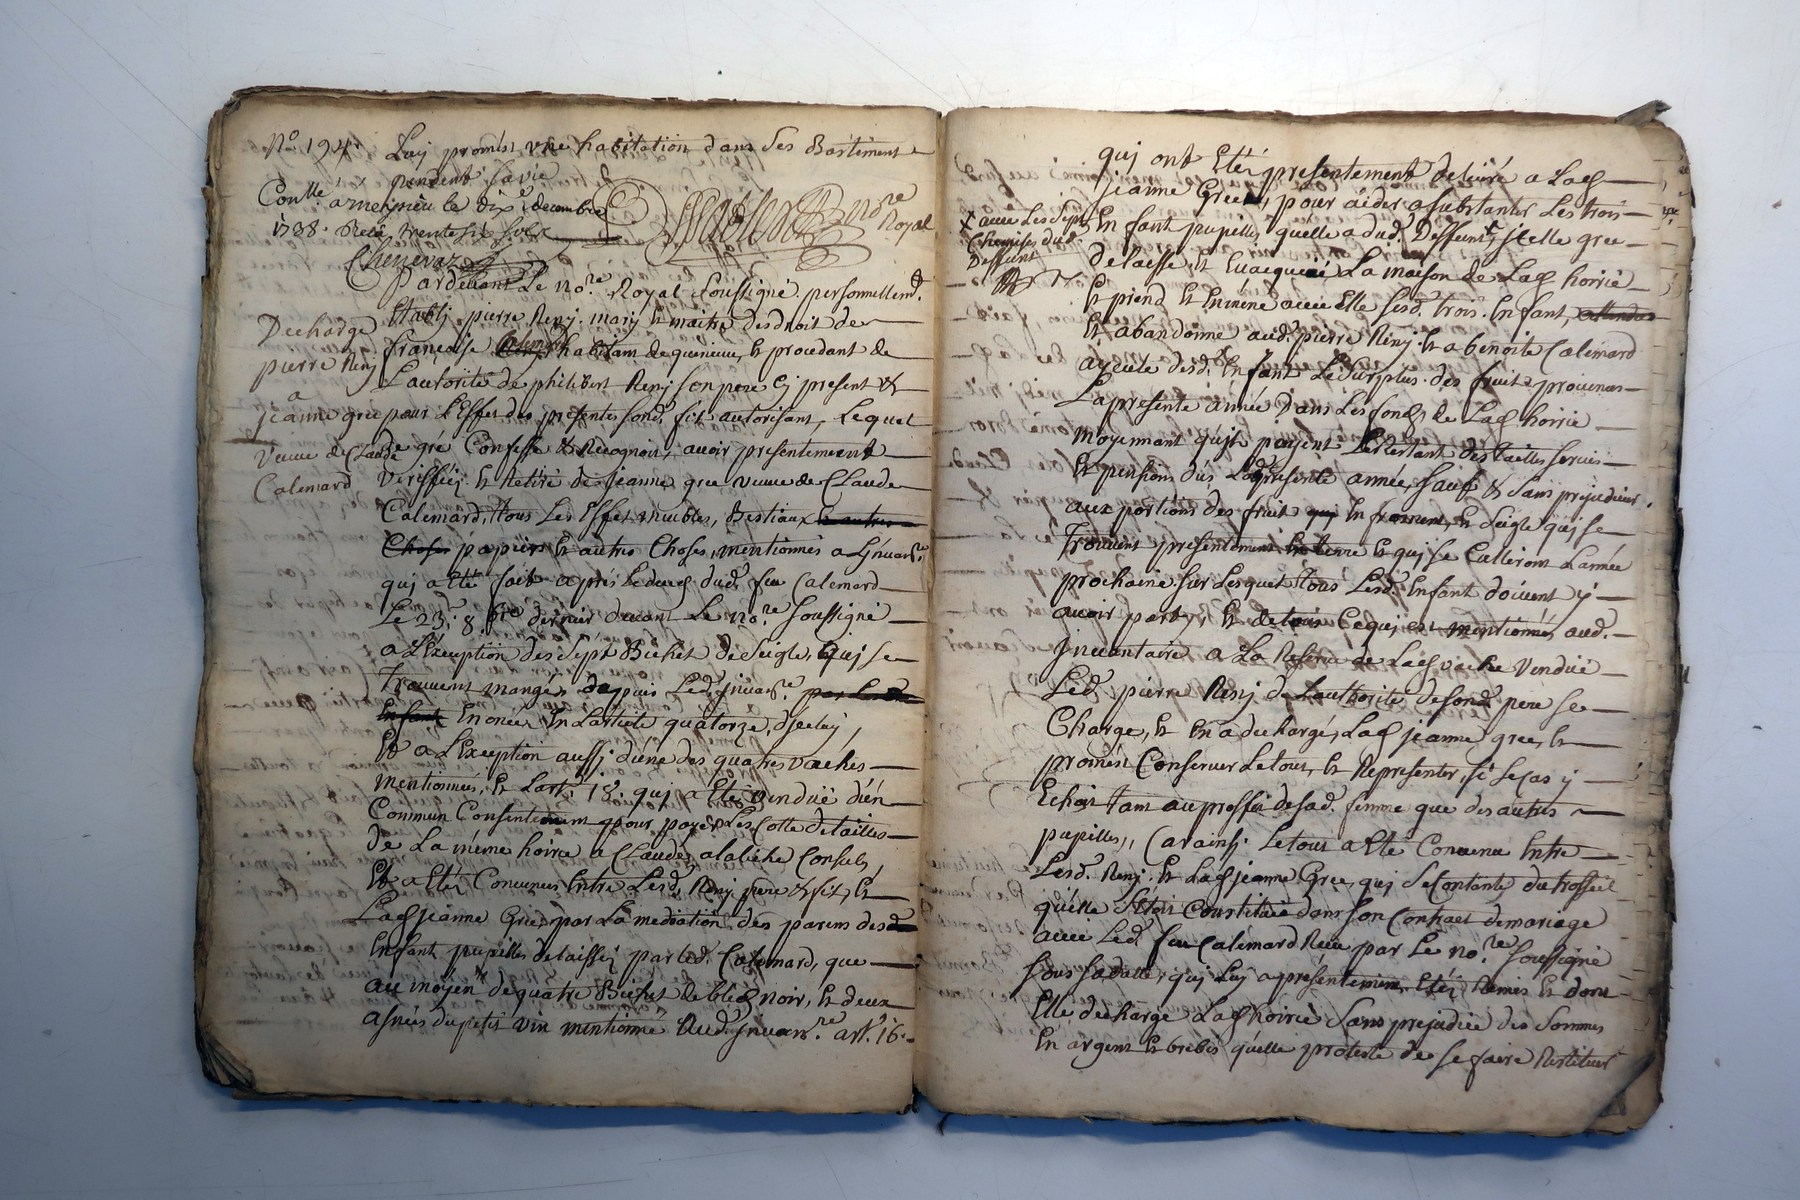 No. 194. Luy promést une habitation dans ses Bastiment
pendent sa vie
Conllé. a meynieu le dix xbre decembre
1738. Recu trente six sols
Chenevaz
no.re Royal
Pardevant Le no.re Royal soussigné. personnellemt.
Etably pierre Reny. mary et maitre desdroit de
francoise Calemard habitam de quirieu, et procedant de
L'autorité de philibert Reny son pere Cy present &
pour L'Effet des presentes sond. fis autorisant, Lequel
de gré Confesse & Recognoit, avoir presentement
veriffiéz et Retiré de jeanne gree veuve de Claude
Calemard, tous Les Effet meubles, Bestiaux et autres
Choses papiers et autres Choses, mentionnés a L'jnvanre.
quj a Eté fait aprés Le deces dud. feu Calemard
Le 23. 8bre dernier devant Le no.re soussigné
a L'Exception des sept Bichet de seigle, quj se
Trouvent mangés depuis Led. jnvanre.
Enfant Enoncé En L'article quatorze, d'jceluy,
Et a L'Exception aussj d'une des quatres vaches
mentionnées. En L'art. 18. quj a Eté vendue d'un
Commun Consentement pour payer Les Cotte de tailles
de La méme hoirie a Claude Consuls,
Et a Eté Convenus Entre Lesd. Reny. pere & fis, et
Lad. jeanne Gree, par La mediation des parens desd.
Enfant pupilles delaissés par Led. Calemard, que
au moyen de quatre Bichet de bled noir, et deux
asnées du petit vin mentionné aud. jnvanre. art. 16.
Decharge
pierre Reny
a
jeanne gree
veuve de Claude
Calemard
quj ont Eté presentement delivré a Lad.
jeanne Gree, pour aider a substanter Les trois
X avec Les sept
Chemises dud.
Deffunt
Enfant pupilles quelle a dud. Deffunt, jcelle gree
delaisse, et Evacquée La maison de Lad. hoirie
Et prend et Emméne avec Elle sesd. trois Enfant,
Et abandonne aud. pierre Reny. Et a benoite Calemard
ayeule desd. Enfant Le surplus des fruit provenas
La presente année Dans Les fonds de Lad. hoirie
Moyennant quils payent Le Restant des tailles servis
Et pensions dus Lad. presente année, sauf & sans prejudicier
aux portions des fruit En froment, et seigle quj se
Trouvent presentement En terre Et quj se Cullirom L'année
prochaine sur Lesquet tous Lesd. Enfant doivent y
avoir part, et de tous Ce quj est mentionné, aud.
jnvantaire a La Reserve de Lad. vache vendue
Led. pierre Reny de L'authorité de sond. pere se
Charge, et En a dechargé, Lad. jeanne gree, et
promést Conserver Le tout, et Representer, si le cas y
Echoit tam au proffit de sad. femme que des autres
pupilles, Car ainsi Le tout a Eté Convenu Entre
Lesd. Reny. et Lad. jeanne Gree, quj se Contante du trosseil
quélle s'étoit Constituée dans son Contract de mariage
avec Led. feu Calemard Recu par Le no.re soussigné
sous sa datte, quj Luy a présentement Eté Remis et dont
Elle decharge Lad. hoirie sans prejudice des sommes
En argent et brebis quélle proteste de se faire Restituer